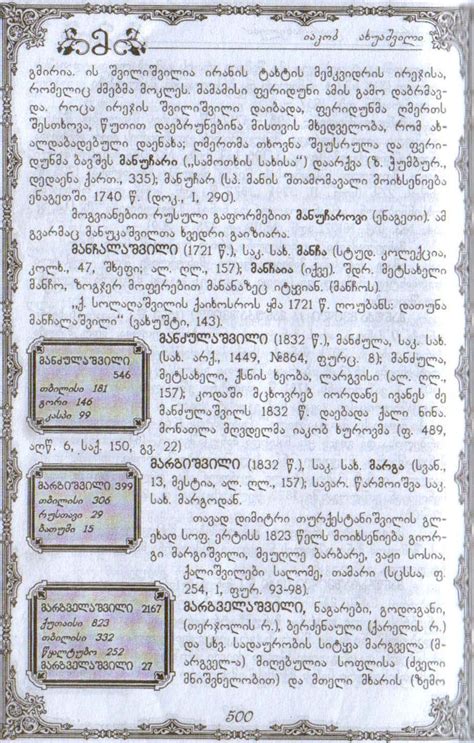 მ
იაკობ ახუაშვილი
გმირია. ის შვილიშვილია ირანის ტახტის მემკვიდრის ირეჯისა,
რომელიც ძმებმა მოკლეს. მამამისი ფერიდუნი ამის გამო დაბრმავ-
და. როცა ირეჯის შვილიშვილი დაიბადა, ფერიდუნმა ღმერთს
შესთხოვა, წუთით დაებრუნებინა მისთვის მხედველობა, რომ ახ-
ალდაბადებული დაენახა; ღმერთმა თხოვნა შეუსრულა და ფერი-
დუნმა ბავშვს მანუჩარი („სამოთხის სახისა“) დაარქვა (ზ. ჭუმბურ.,
დედაენა ქართ., 335); მანუჩარ (სპ. მანის შთამომავალი მოიხსენიება
ენაგეთში 1740 წ. (დოკ., I, 290).
მოგვიანებით რუსული გაფორმებით მანუჩაროვი (ენაგეთი). ამ
გვარმაც მანუკაშვილთა ხვედრი გაიზიარა.
მანჩალაშვილი (1721 წ.), საკ. სახ. მანჩა (სტუდ. კოლექცია,
კოლხ., 47, შხეფი; ალ. ღლ., 157); მანჩაია (იქვე). შდრ. მეტსახელი
მანჩო, ზოგჯერ მოფერებით მანანაზეც იტყვიან. (მანჩოს).
„ქ. სოლაღაშვილის ქაიხოსროს ყმა 1721 წ. ღოუბანს: დათუნა
მანჩალაშვილი“ (ვახუშტი, 143).
მანძულაშვილი
546
თბილისი 181
გორი 146
კასპი 99
მანძულაშვილი (1832 წ.), მანძულა, საკ. სახ.
(სახ. არქ., 1449, №864, ფურც. 8); მანძულა,
მეტსახელი, ქსნის ხეობა, ლარგვისი (ალ. ღლ.,
157); კოდაში მცხოვრებ იორდანე ივანეს ძე
მანძულაშვილს 1832 წ. დაებადა ქალი ნინა.
მონათლა მღვდელმა იაკობ ხუროვმა (ფ. 489,
აღწ. 6, საქ. 150, გვ. 22)
მარგიშვილი 399
თბილისი 306
რუსთავი 29
ბათუმი 15
მარგიშვილი (1832 წ.), საკ. სახ. მარგა (სვან.,
13, მესტია, ალ. ღლ., 157); სავარ. წარმოიშვა საკ.
სახ. მარგოდან.
თავად დიმიტრი თურქესტანიშვილის გლ-
ეხად სოფ. ერტისს 1823 წელს მოიხსენიება გიორ-
გი მარგიშვილი, მეუღლე ბარბარე, ვაჟი სოსია,
ქალიშვილები სალომე, თამარი (სცსსა, ფ.
254, I, ფურ. 93-98).
მარგველაშვილი 2167
ქუთაისი 823
თბილისი 332
წყალტუბო 252
მარგველაშვილი 27
მარგველაშვილი, ნაგარები, გოდოგანი,
(თერჯოლის რ.), ბერძენაული (ქარელის რ.)
და სხვ. სადაურობის სიტყვა მარგველა (მ-
არგველ-ა) მიღებულია სოფლისა (ძველი
მნიშვნელობით) და მთელი მხარის (ზემო
500